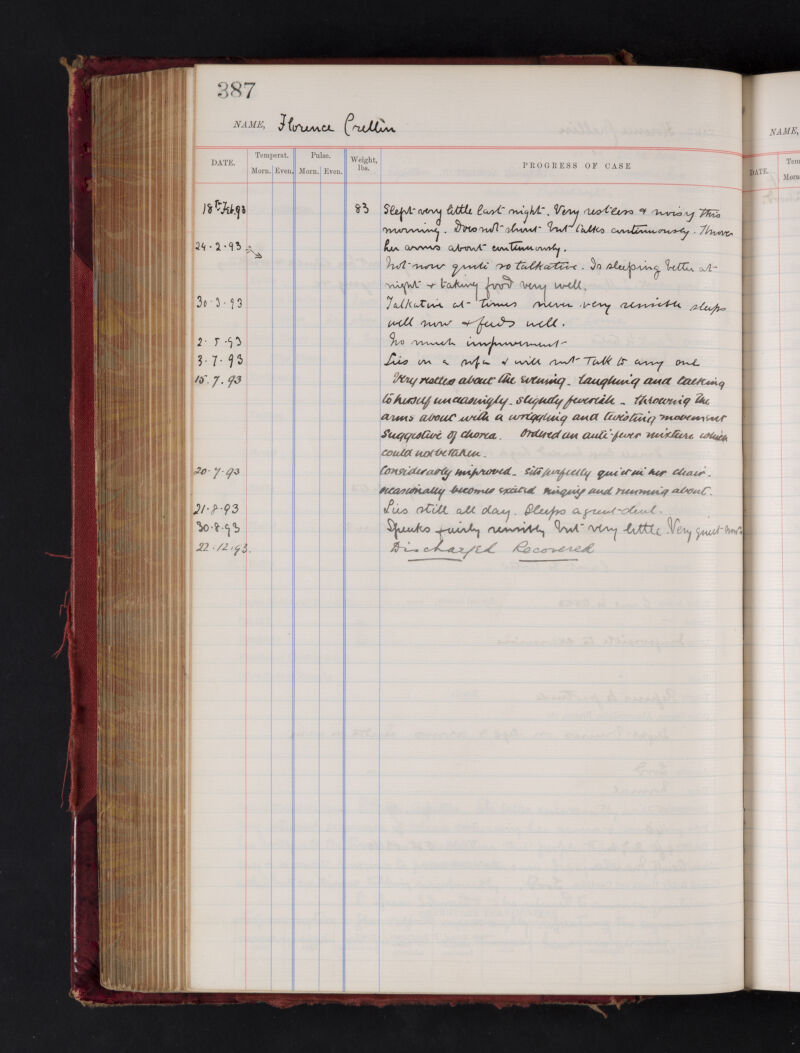 387
NAME, Florence Crellin
NAME,
DATE. Temperat. Pulse. Weight, lbs. PROGRESS OF CASE
Morn. Even. Morn. Even.
DATE. Tem
Morn
18th Feb. 93 83 Slept very little last night. Very restless & noisy this
morning. Does not shout but talks continuously. Throws
24.2.93 her arms about continuously.
Not now quite so talkative. Is sleeping better at
night & taking food very well.
30.3.93 Talkative at times never very sensible sleeps
well now & feeds well.
2.5.93 No much improvement
3.7.93 Lies on a sofa & will not talk to any one
15.7.93 Very restless about the evening. Laughing and talking
to herself unceasingly. slightly feverish. throwing the
arms about with a wriggling and twisting movement
suggestive of chorea. Ordered an anti-fever mixture which
could not be taken.
20.7.93 Considerably improved. sits perfectly quiet in her chair.
occasionally becomes excited singing and running about.
21.8.93 Lies still all day. Sleeps a great deal.
30.8.93 Speaks fairly sensibly but very little. Very quiet now
22.12.93. Discharged Recovered